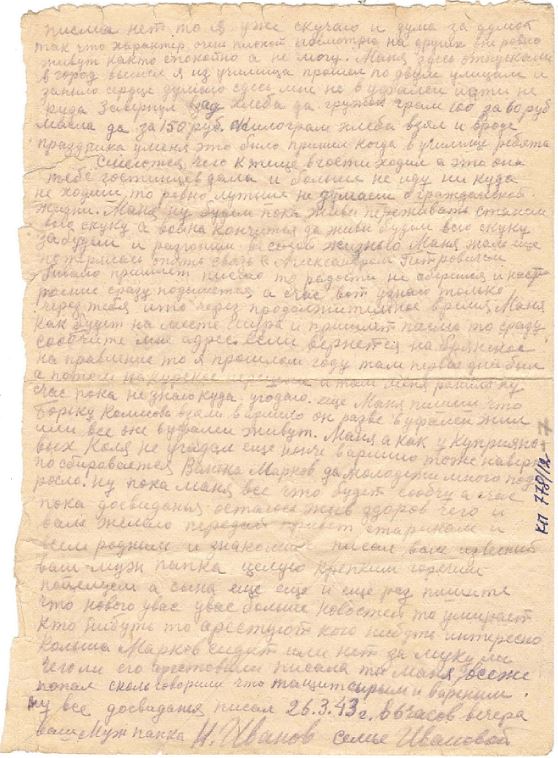 письма нет то я уже скучаю и дума за думой
так что характер очень плохой посмотрю на других они ровно
живут както спокойно а не могу. Маня здесь отпускали
в город вышел я из училища прошел по двум улицам и
заныло сердце думаю здесь мне не в идти не
куда завернул хлеба да грам 100 за 60 руб
масла да за 150 руб. килограм хлеба взял и вроде
праздника у меня это было пришел когда в училище ребята
смеются чего к теще в гости ходил а это она
тебе гостинцев дала и больше не иду ни куда
не ходиш то ровно лутьше не думаеш о гражданской
жизни. Маня ну будем пока живы переживать станем
всю скуку а война кончится да живы будем всю скуку
забудем и жизнью Маня жаль еще
потерялась опять связь с Александром Петровичем
бывало пришлет письмо то радости не оберешся и наст
роение сразу подымется а счас вот узнаю только
через тебя и то через продолжительное время. Маня
как будет на месте Шура и пришлет письмо то сразу
сообчите мне адрес. если вернется на
направление то я прошлом году там первые дни был
а потом на курское и там меня ранили ну
счас пока не знаю куда угодаю. еще Маня пишеш что
Борьку взяли в армию он разве в жил
или все они в живут. Маня а как у Куприяно-
вых Коля не угадал еще в армию тоже наверно
по сбирается Валька Марков да молодежи много под
росло. ну пока Маня все что будет сообчу а счас
пока досвиданья остаюсь жив здоров чего и
вам желаю передай привет старикам и
всем родным и знакомым писал вам известный
ваш муж папка целую крепким горячим
поцелуем а сына еще еще и еще раз пишите
что нового у вас у вас больше новостей то умирает
кто нибуть то арестуют кого нибуть интересно
Колька Марков сидит или нет за муку ли
чего ли его арестовали писала ты Маня,
попал сколь говорили что тащит сырым и вареным.
ну все досвиданья писал 26.3.43 г. 8 часов вечера
ваш Муж папка И. Иванов семье Ивановой
КП 778/12-7